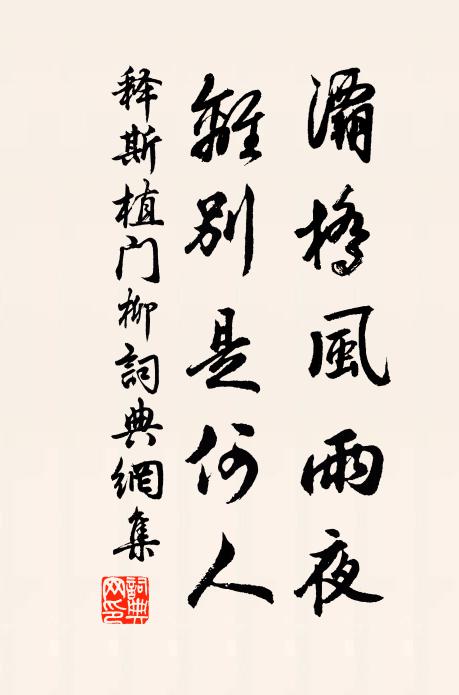 灞橋風雨夜
離別是何人
释斯植门柳詞典網集
詞典网印